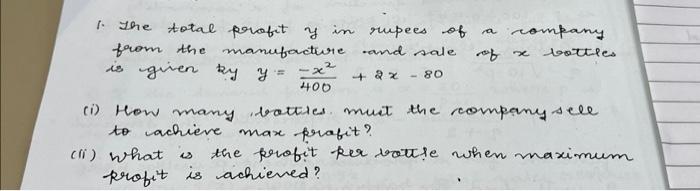 1. The total profit y in rupees of a company
from the manufacture and sale of x bottles
is given by y = -x²/400 + 2x - 80
(i) How many bottles must the company sell
to achieve max profit?
(ii) What is the profit per bottle when maximum
profit is achieved?